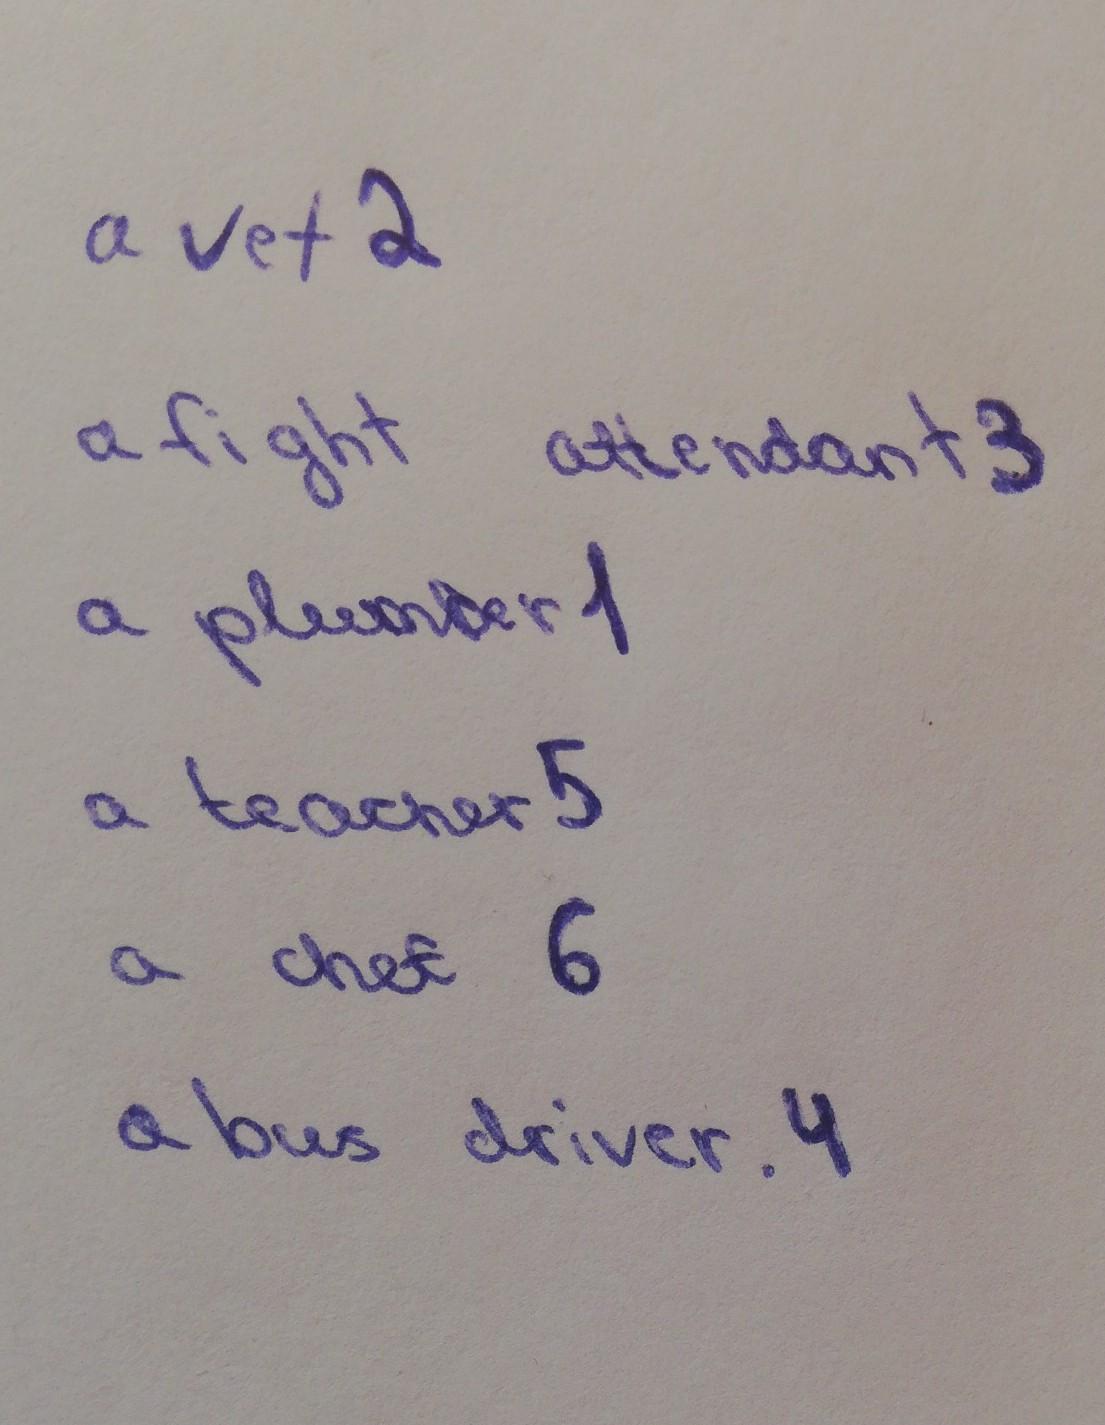 a vet 2
a fight attendant 3
a plumber 1
a teacher 5
a chef 6
a bus driver. 4